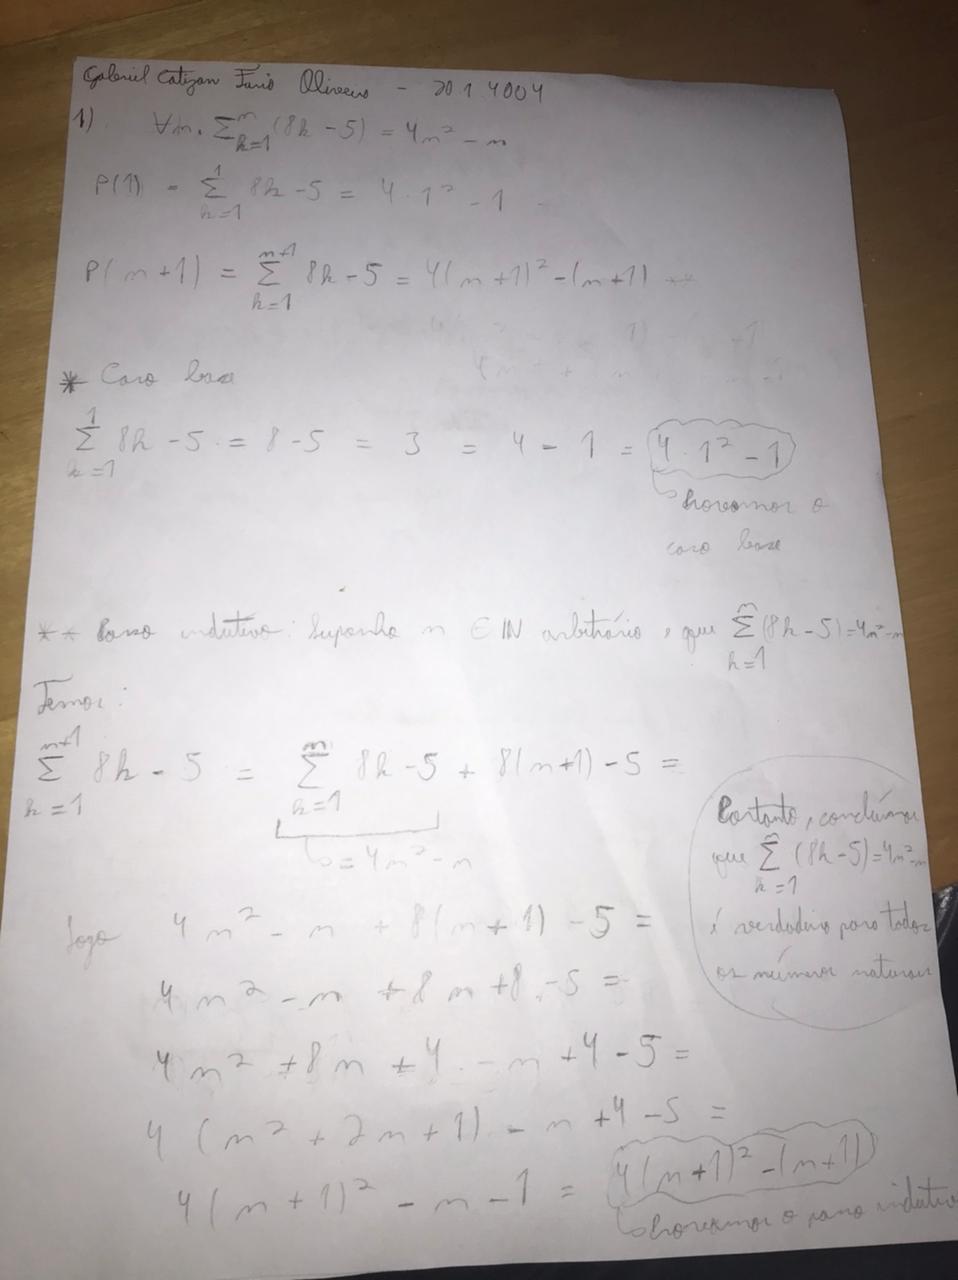 Gabriel Catizan Faris Oliveira - 2014004
1) ∀n. Σ_{k=1}^{n} (8k - 5) = 4n² - n
P(1) = Σ_{k=1}^{1} 8k - 5 = 4 · 1² - 1
P(n+1) = Σ_{k=1}^{n+1} 8k - 5 = 4(n+1)² - (n+1) **
* Caso base
Σ_{k=1}^{1} 8k - 5 = 8 - 5 = 3 = 4 - 1 = 4 · 1² - 1
Provamos o
caso base
** Passo indutivo: Suponha n ∈ IN arbitrário, que Σ_{k=1}^{n} (8k - 5) = 4n² - n
Temos:
Σ_{k=1}^{n+1} 8k - 5 = Σ_{k=1}^{n} 8k - 5 + 8(n+1) - 5 =
= 4n² - n
Logo 4n² - n + 8(n+1) - 5 =
4n² - n + 8n + 8 - 5 =
4n² + 8n + 4 - n + 4 - 5 =
4(n² + 2n + 1) - n + 4 - 5 =
4(n+1)² - n - 1 = 4(n+1)² - (n+1)
Provamos o passo indutivo
Portanto, concluímos
que Σ_{k=1}^{n} (8k - 5) = 4n² - n
é verdadeiro para todos
os números naturais